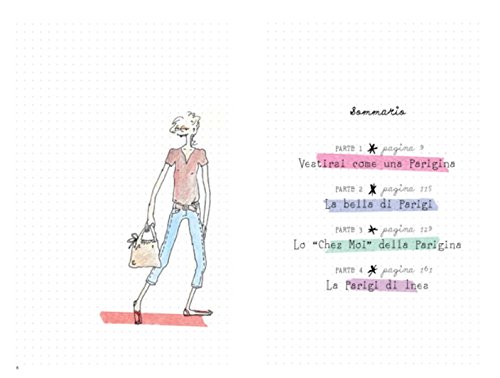 Sommario
PARTE 1 * pagina 9
Vestirsi come una Parigina
PARTE 2 * pagina 115
La bella di Parigi
PARTE 3 * pagina 129
Lo "Chez Moi" della Parigina
PARTE 4 * pagina 161
La Parigi di Ines